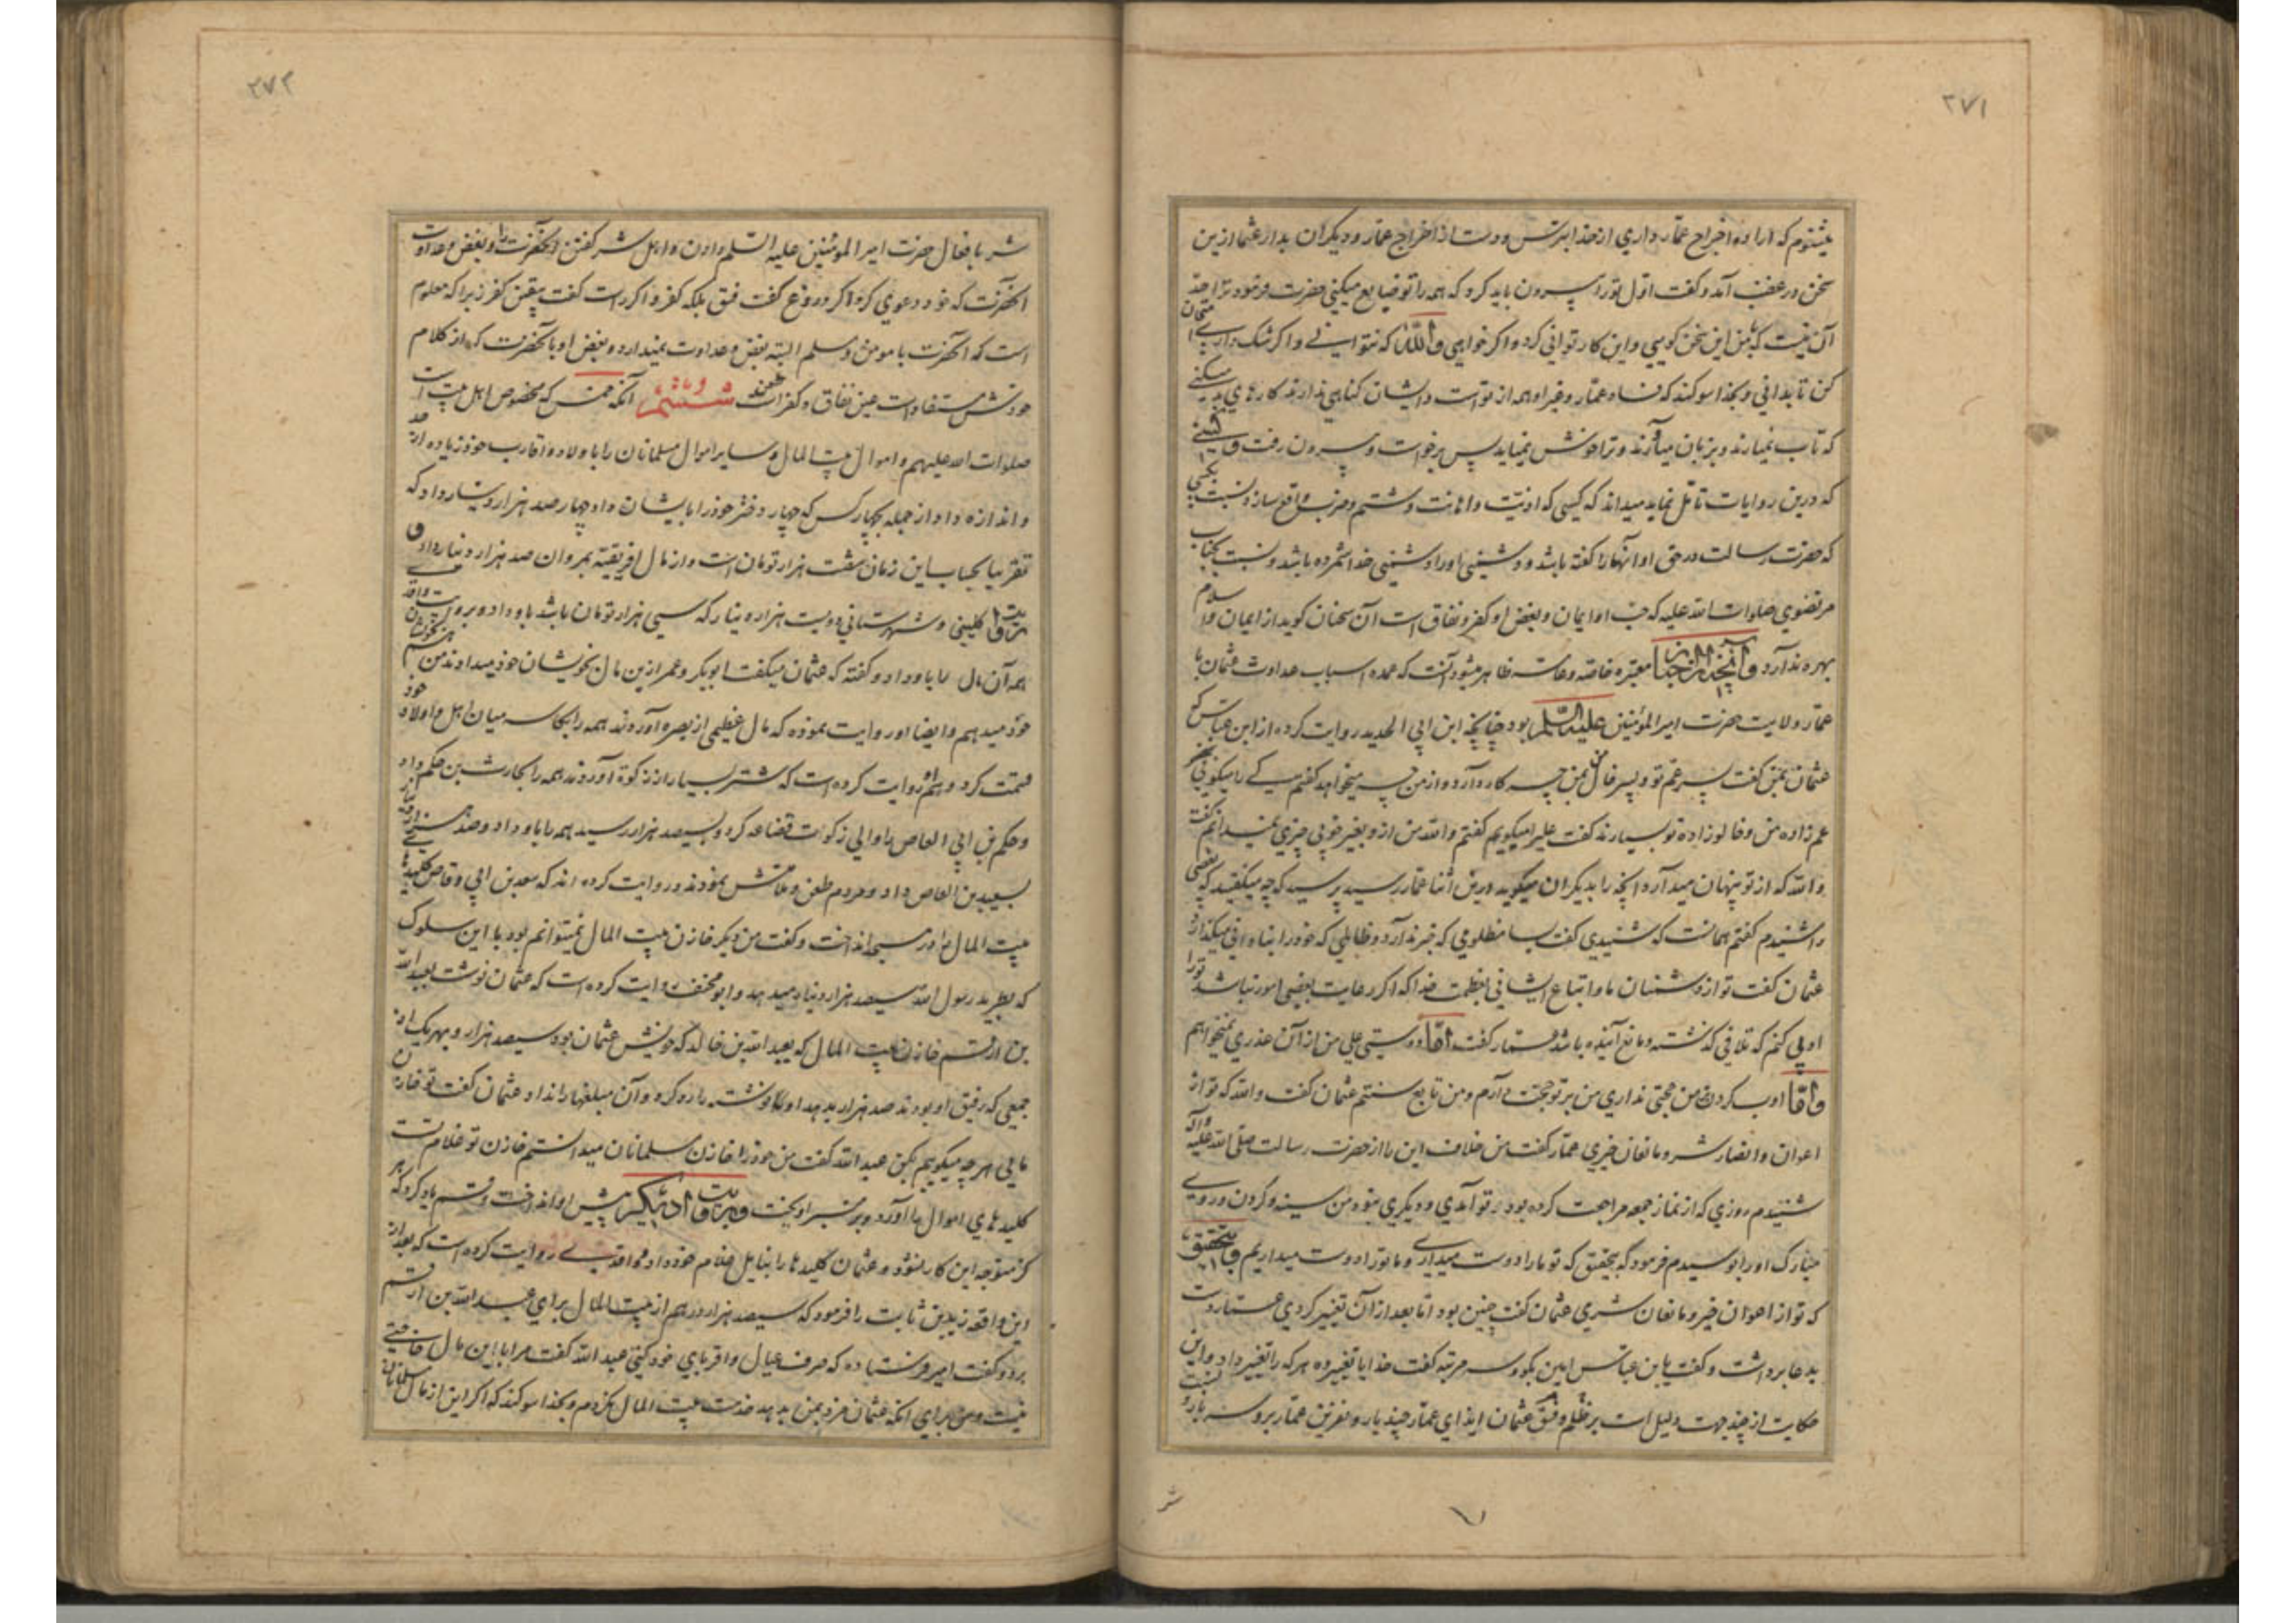 ۲۷۱
میشنوم که اراده اخراج عمار داری از خدا بترس و دست از اخراج عمار و دیگران بدار عثمان ازین
سخن در غضب آمد و گفت اول تو را بیرون باید کرد که همه را تو ضایع میکنی حضرت فرمود ترا حد
آن نیست که بمن این سخن گویی و این کار توانی کرد و اگر خواهی والله که نتوانی و اگر شک داری امتحان
کن تا بدانی و بخدا سوگند که فساد عمار و غیر او همه از تو است و ایشان گناهی ندارند کارهای بد میکنی
که تاب نمیارند و بزبان میآرند و ترا خوش نمیاید پس برخواست و بیرون رفت و کسی
که درین روایات تأمل نماید میداند که کسی که اذیت و اهانت و شتم و ضرب واقع سازد نسبت بکسی
که حضرت رسالت در حق او آنها را گفته باشد و دشمنی او را دشمنی خدا شمرده باشد و نسبت بجناب
مرتضوی صلوات الله علیه که حب او ایمان و بغض او کفر و نفاق است آن سخنان گوید از ایمان و اسلام
بهره ندارد و آنچه از اخبار معتبره خاصه و عامه ظاهر میشود آنست که عمده اسباب عداوت عثمان با
عمار ولایت حضرت امیر المؤمنین علیه السلم بود چنانچه ابن ابی الحدید روایت کرده از ابن عباس که
عثمان بمن گفت پسر عم تو و پسر خال من بمن چه کار دارد و از من چه میخواهد گفتم کی را میگویی
عم زاده من و خالوزاده تو بسیارند گفت علی را میگویم گفتم والله من ازو بغیر خوبی چیزی نمیدانم گفت
والله که از تو پنهان میدارد آنچه را بدیگران میگوید درین اثنا عمار رسید پرسید که چه میگفتید که بعضی
را شنیدم گفتم همانست که شنیدی گفت بسا مظلومی که خبر ندارد و ظالمی که خود را بنادانی میگذارد
عثمان گفت تو از دشمنان ما و اتباع ایشانی بعظمت خدا که اگر رعایت بعضی امور نباشد تو را
ادبی کنم که تلافی گذشته و مانع آینده باشد عمار گفت اما دوستی علی من از آن عذری نمیخواهم
و اما ادب کردن من حجتی نداری من بر تو حجت دارم و من تابع سنتم عثمان گفت والله که تو از
اعوان و انصار شر و مانعان خیری عمار گفت من خلاف این را از حضرت رسالت صلی الله علیه و آله
شنیدم روزی که از نماز جمعه مراجعت کرده بود تو آمدی و دیگری نبود من سینه و گردن و روی
مبارک او را بوسیدم فرمود که بتحقیق که تو ما را دوست میداری و ما تو را دوست میداریم و بتحقیق
که تو از اعوان خیر و مانعان شری عثمان گفت چنین بود اما بعد از آن تغییر کردی عمار دست
بدعا برداشت و گفت یا بن عباس امین بگو و سه مرتبه گفت خدایا تغییر ده هر که را تغییر داد و این
حکایت از چند جهت دلیل است بر ظلم و فسق عثمان ایذای عمار چند بار و نفرین عمار برو سه بار و نسبت
شر
۲۷۲
شر بافعال حضرت امیر المؤمنین علیه السلم دادن و اهل شر گفتن آنحضرت را و بغض و عداوت
آنحضرت که خود دعوی کرد اگر دروغ گفت فسق بلکه کفر و اگر راست گفت یقین کفر زیرا که معلوم
است که آنحضرت با مومن و مسلم البته بغض و عداوت نمیدارد و بغض او با آنحضرت که از کلام
خودش مستفاد است عین نفاق و کفر است طعن شششم آنکه خمس که مخصوص اهل بیت است
صلوات الله علیهم و اموال بیت المال و سایر اموال مسلمانان را باولاد و اقارب خود زیاده از حد
و اندازه داد از جمله بچهار کس که چهار دختر خود را بایشان داد چهار صد هزار دینار داد که
تقریبا بحساب این زمان شصت هزار تومان است و از مال افریقیه بمروان صد هزار دینار داد و
بروایت کلینی و شهرستانی دویست هزار دینار که سی هزار تومان باشد باو داد و بروایت واقدی
همه آن مال را باو داد و گفته که عثمان میگفت ابوبکر و عمر ازین مال بخویشان خود میدادند من هم بخویشان
خود میدهم و ایضا او روایت نموده که مال عظیمی از بصره آوردند همه را بکاسه میان اهل و اولاد خود
قسمت کرد و هم او روایت کرده است که شتر بسیار از زکوة آوردند همه را بحارث بن حکم داد
و حکم بن ابی العاص را والی زکوات قضاعه کرد و بسیصد هزار رسید همه را باو داد و صد هزار
بسعید بن العاص داد و مردم طعن و ملامتش نمودند و روایت کرده اند که سعد بن ابی وقاص کلیدهای
بیت المال را در مسجد انداخت و گفت من دیگر خازن بیت المال نمیتوانم بود با این سلوک
که بطرید رسول الله سیصد هزار دینار میدهد و ابو مخنف روایت کرده است که عثمان نوشت بعبد الله
بن ارقم خازن بیت المال که بعبد الله بن خالد که خویش عثمان بود سیصد هزار و بهر یک از
جمعی که رفیق او بودند صد هزار بدهد او نوشته را رد کرد و آن مبلغها را نداد عثمان گفت تو خازن
مایی هر چه میگوییم بکن عبد الله گفت من خود را خازن مسلمانان میدانستم خازن تو غلام تست
کلیدهای اموال را آورد و بر منبر آویخت و بروایت دیگر پیش او انداخت و قسم یاد کرد که هر
گز متوجه این کار نشود و عثمان کلیدها را بنایل غلام خود داد و واقدی روایت کرده است که بعد از
این واقعه زید بن ثابت را فرمود که سیصد هزار درهم از بیت المال برای عبد الله بن ارقم
برد و گفت امیر فرستاده که صرف عیال و اقربای خود کنی عبد الله گفت مرا باین مال حاجتی
نیست و من برای آنکه عثمان مزد بمن بدهد خدمت بیت المال نکردم و بخدا سوگند که اگر این از مال مسلمانان